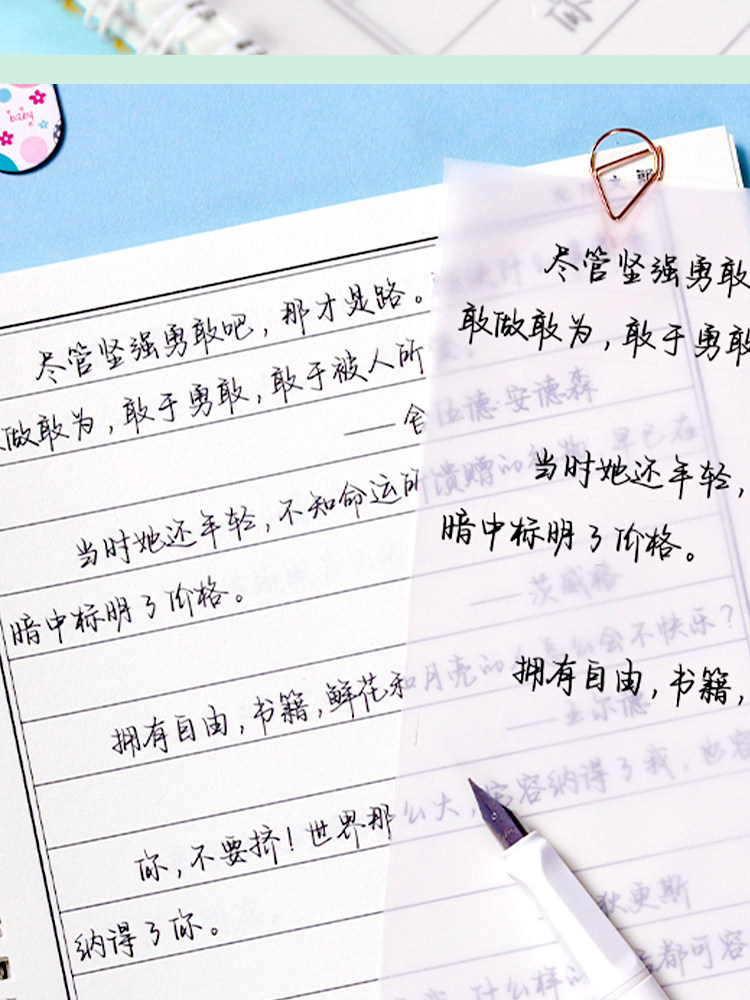 你
baby
尽管坚强勇敢吧，那才是路。
做敢为，敢于勇敢，敢于被人所
——舍 伍德·安德森
当时她还年轻，不知命运所馈赠的礼物，早已在
暗中标明了价格。
——茨威格
拥有自由，书籍，鲜花和月亮的人怎么会不快乐？
——王尔德
你，不要挤！世界那么大，它容纳得了我，也容
纳得了你。
狄更斯
什么样的 都可容
尽管坚强勇敢
敢做敢为，敢于勇敢
当时她还年轻，
暗中标明了价格。
拥有自由，书籍，